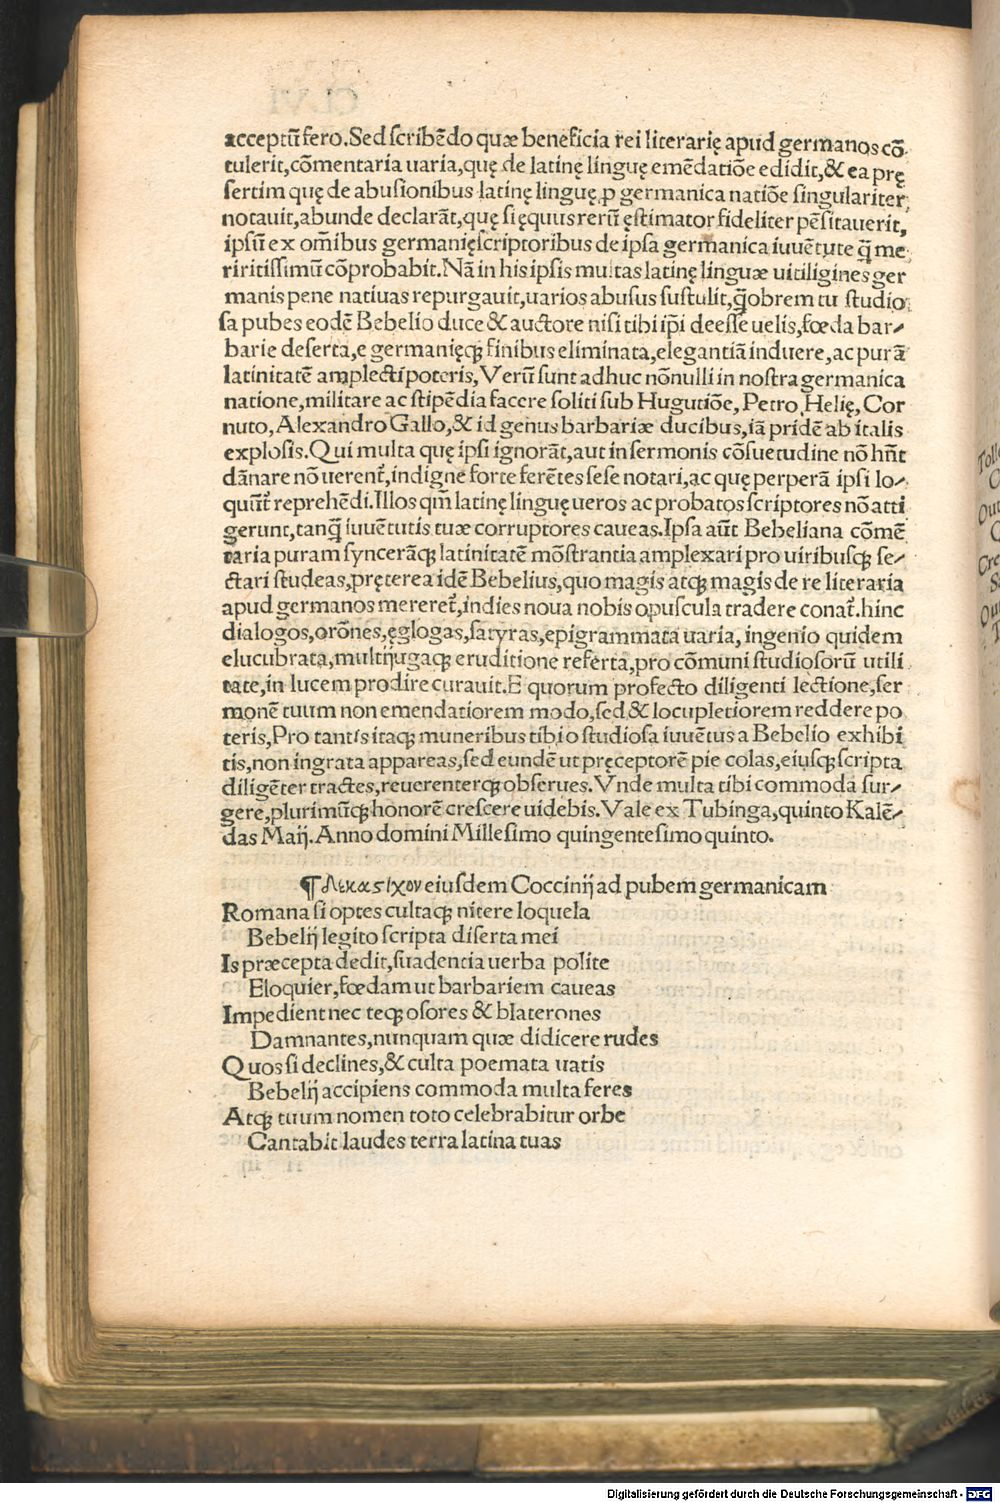 acceptū fero. Sed scribēdo quæ beneficia rei literarię apud germanos cō
tulerit, cōmentaria uaria, quę de latinę linguę emēdatiōe edidit, & ea prę
sertim quę de abusionibus latinę linguę ꝓ germanica natiōe singulariter
notauit, abunde declarāt, quę si ęquus rerū ęstimator fideliter pēsitauerit,
ipsū ex om̄ibus germanię scriptoribus de ipsa germanica iuuētute q̄ me
riritissimū cōprobabit. Nā in his ipsis multas latinę linguæ uitiligines ger
manis pene natiuas repurgauit, uarios abusus sustulit, q̄obrem tu studio
sa pubes eodē Bebelio duce & auctore nisi tibi ip̄i deesse uelis, fœda bar⸗
barie deserta, e germanięqꝫ finibus eliminata, elegantiā induere, ac purā
latinitatē amplecti poteris, Verū sunt adhuc nōnulli in nostra germanica
natione, militare ac stipēdia facere soliti sub Hugutiōe, Petro, Helię, Cor
nuto, Alexandro Gallo, & id genus barbariæ ducibus, iā pridē ab italis
explosis. Qui multa quę ipsi ignorāt, aut in sermonis cōsuetudine nō hn̄t
dānare nō uerent᷑, indigne forte ferētes sese notari, ac quę perperā ipsi lo⸗
quūt᷑ reprehēdi. Illos qm̄ latinę linguę ueros ac probatos scriptores nō atti
gerunt, tanq̄ iuuētutis tuæ corruptores caueas. Ipsa aūt Bebeliana cōmē
taria puram syncerāqꝫ latinitatē mōstrantia amplexari pro uiribusqꝫ se⸗
ctari studeas, pręterea idē Bebelius, quo magis atqꝫ magis de re literaria
apud germanos mereret᷑, indies noua nobis opuscula tradere conat᷑. hinc
dialogos, orōnes, ęglogas, satyras, epigrammata uaria, ingenio quidem
elucubrata, multijugaqꝫ eruditione referta, pro cōmuni studiosorū utili
tate, in lucem prodire curauit. E quorum profecto diligenti lectione, ser
monē tuum non emendatiorem modo, sed & locupletiorem reddere po
teris, Pro tantis itaqꝫ muneribus tibi o studiosa iuuētus a Bebelio exhibi
tis, non ingrata appareas, sed eundē ut pręceptorē pie colas, eiusqꝫ scripta
diligēter tractes, reuerenterqꝫ obserues. Vnde multa tibi commoda sur⸗
gere, plurimūqꝫ honorē crescere uidebis. Vale ex Tubinga, quinto Kalē⸗
das Maij. Anno domini Millesimo quingentesimo quinto.
¶ Δεκαστιχον eiusdem Coccinij ad pubem germanicam
Romana si optes cultaqꝫ nitere loquela
Bebelij legito scripta diserta mei
Is præcepta dedit, suadentia uerba polite
Eloquier, fœdam ut barbariem caueas
Impedient nec teqꝫ osores & blaterones
Damnantes, nunquam quæ didicere rudes
Quos si declines, & culta poemata uatis
Bebelij accipiens commoda multa feres
Atqꝫ tuum nomen toto celebrabitur orbe
Cantabit laudes terra latina tuas
Digitalisierung gefördert durch die Deutsche Forschungsgemeinschaft - DFG